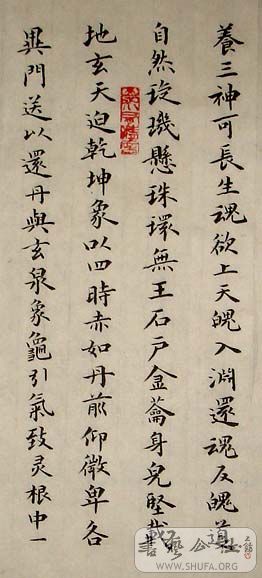 養三神可長生魂欲上天魄入淵還魂反魄道
自然琁璣懸珠環無王石戶金籥身皃堅載
地玄天迫乾坤象以四時赤如丹前仰微卑各
異門送以還丹與玄泉象龜引氣致灵根中一
WWW.SHUFA.ORG